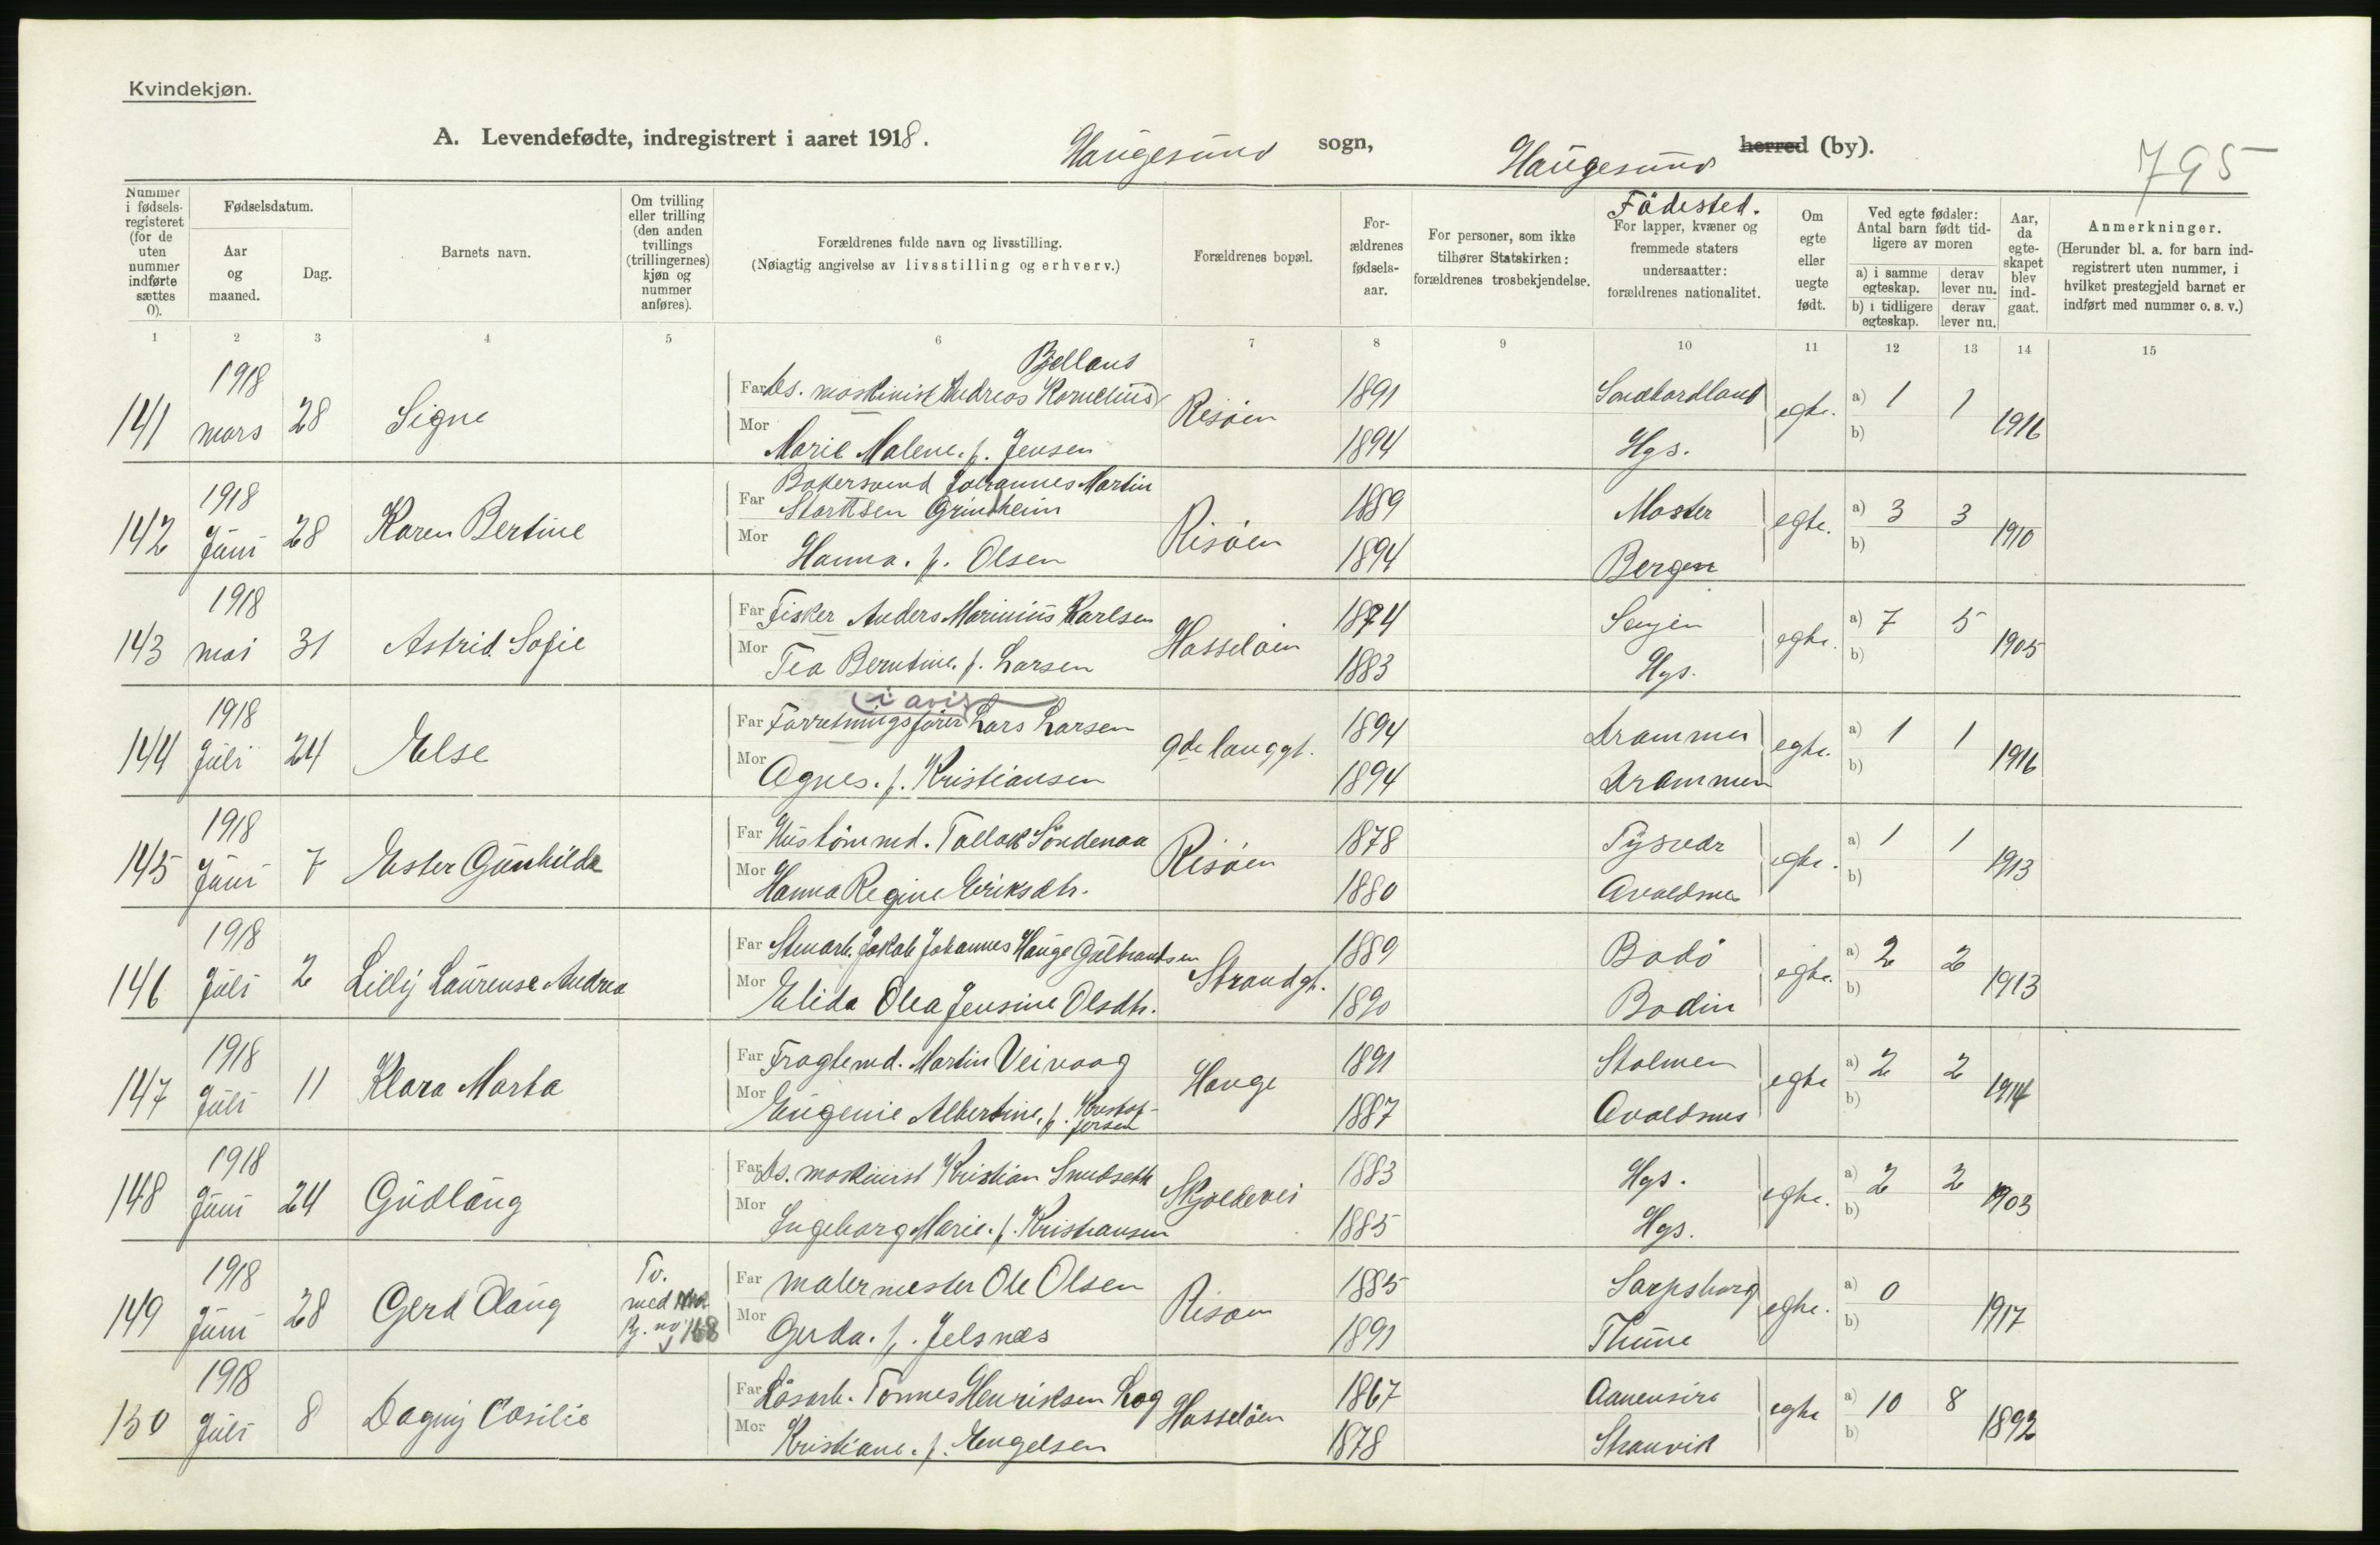 Kvindekjøn.
A. Levendefødte, indregistrert i aaret 1918. Haugesund sogn, Haugesund herred (by). 795
Nummer i fødselsregisteret (for de uten nummer indførte sættes 0).
Fødselsdatum.
Aar og maaned.
Dag.
Barnets navn.
Om tvilling eller trilling (den anden tvillings (trillingernes) kjøn og nummer anføres).
Forældrenes fulde navn og livsstilling.
(Nøiagtig angivelse av livsstilling og erhverv.)
Forældrenes bopæl.
Forældrenes fødselsaar.
For personer, som ikke tilhører Statskirken: forældrenes trosbekjendelse.
Födested.
For lapper, kvæner og fremmede staters undersaatter: forældrenes nationalitet.
Om egte eller uegte født.
Ved egte fødsler: Antal barn født tidligere av moren
a) i samme egteskap. derav lever nu.
b) i tidligere egteskap. derav lever nu.
Aar, da egteskapet blev indgaat.
Anmerkninger.
(Herunder bl. a. for barn indregistrert uten nummer, i hvilket prestegjeld barnet er indført med nummer o. s. v.)
1 2 3 4 5 6 7 8 9 10 11 12 13 14 15
141 1918 mars 28 Signe
Far Ds. maskinist Andreas Kornelius Bjelland 1891
Mor Marie Malene. f. Jensen Risöen 1894 Hgs. egte. a) 1 1 b) 1916
142 1918 Juni 28 Karen Bertine
Far Bakersvend Johannes Martin Grindheim 1889 Moster
Mor Hanna. f. Olsen Risöen 1894 Bergen egte. a) 3 3 b) 1910
143 1918 mai 31 Astrid Sofie
Far Fisker Anders Marinius Karlsen 1874
Mor Tea Berntine. f. Larsen Hasselöen 1883 Hgs. egte. a) 7 5 b) 1905
144 1918 Juli 24 Else
Far Forretningsförer (i avis) Lars Larsen 1894 Drammen
Mor Agnes. f. Kristiansen gde langgt. 1894 Drammen egte. a) 1 1 b) 1916
145 1918 Juni 7 Ester Gunhilda
Far Hustömmd. Tallak Söndenaa 1878 Tysvær
Mor Hanna Regine Eriksdtr. Risöen 1880 Avaldsnes egte. a) 1 1 b) 1913
146 1918 Juli 2 Lilly Laurense Andrea
Far Stenarb. Jakob Johannes Hauge Gulbrandsen 1889 Bodö
Mor Elida Olea Jensine Olsdtr. Strandgt. 1890 Bodin egte. a) 2 2 b) 1913
147 1918 Juli 11 Klara Marta
Far Fragtemd. Martin Veivaag 1891 Stolmen
Mor Eugenie Albertine. f. Kristoffersen Hauge 1887 Avaldsnes egte a) 2 2 b) 1914
148 1918 Juni 24 Gudlaug
Far Ds. maskinist Kristian 1883 Hgs.
Mor Ingeborg Marie. f. Kristiansen Skjoldevei 1885 Hgs. egte. a) 2 2 b) 1903
149 1918 Juni 28 Gerd Olaug Tv. med no 168
Far malermester Ole Olsen 1885 Sarpsborg
Mor Gerda. f. Jelsnæs Risöen 1891 egte. a) 0 b) 1917
150 1918 Juli 8 Dagny Cesilie
Far Lösarb. Tönnes Henriksen Log 1867 Aanensire
Mor Kristiane. f. Engelsen Hasselöen 1878 egte a) 10 8 b) 1892